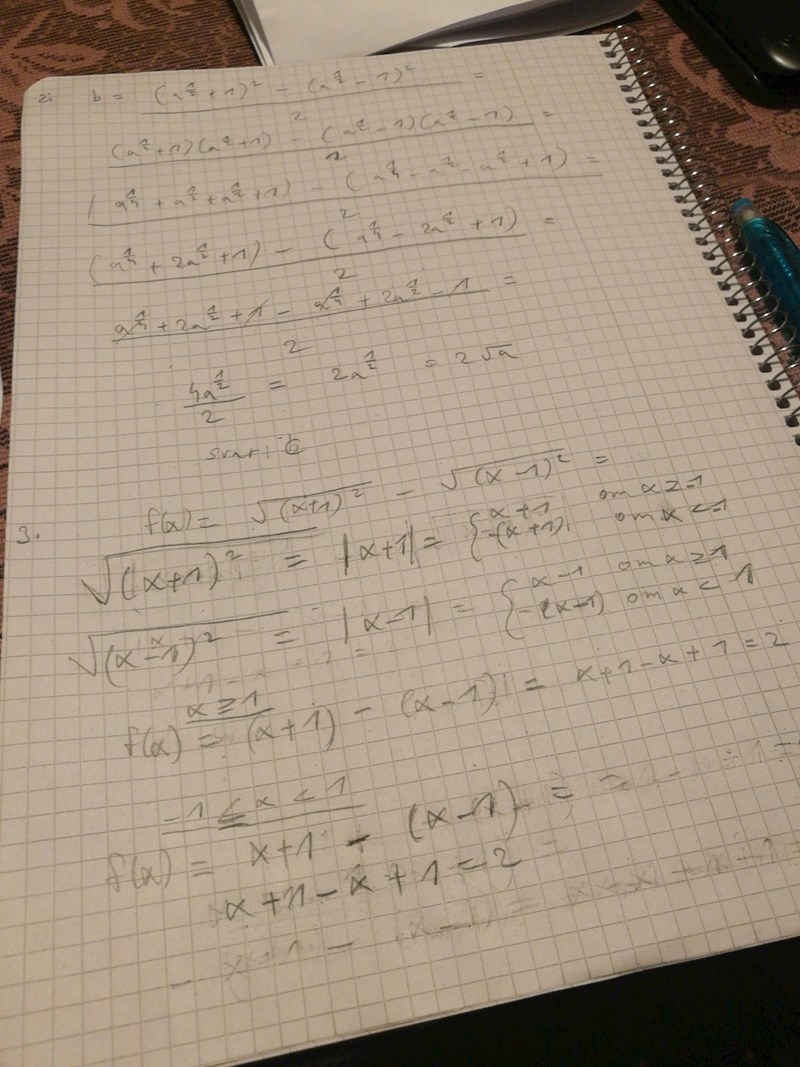 2. b = ((a^{1/2} + 1)^2 - (a^{1/2} - 1)^2)/2 =
((a^{1/2} + 1)(a^{1/2} + 1) - (a^{1/2} - 1)(a^{1/2} - 1))/2 =
((a^{1/4} + a^{1/2} + a^{1/2} + 1) - (a^{1/4} - a^{1/2} - a^{1/2} + 1))/2 =
((a^{1/4} + 2a^{1/2} + 1) - (a^{1/4} - 2a^{1/2} + 1))/2 =
(a^{1/4} + 2a^{1/2} + 1 - a^{1/4} + 2a^{1/2} - 1)/2 =
4a^{1/2}/2 = 2a^{1/2} = 2√a
svar:
3. f(x) = √(x+1)^2 - √(x-1)^2 =
√(x+1)^2 = |x+1| = { x+1 om x ≥ -1
-(x+1) om x < -1
√(x-1)^2 = |x-1| = { x-1 om x ≥ 1
-(x-1) om x < 1
x ≥ 1
f(x) = (x+1) - (x-1) = x+1-x+1 = 2
-1 ≤ x < 1
f(x) = x+1 - (x-1) =
x+1-x+1 = 2